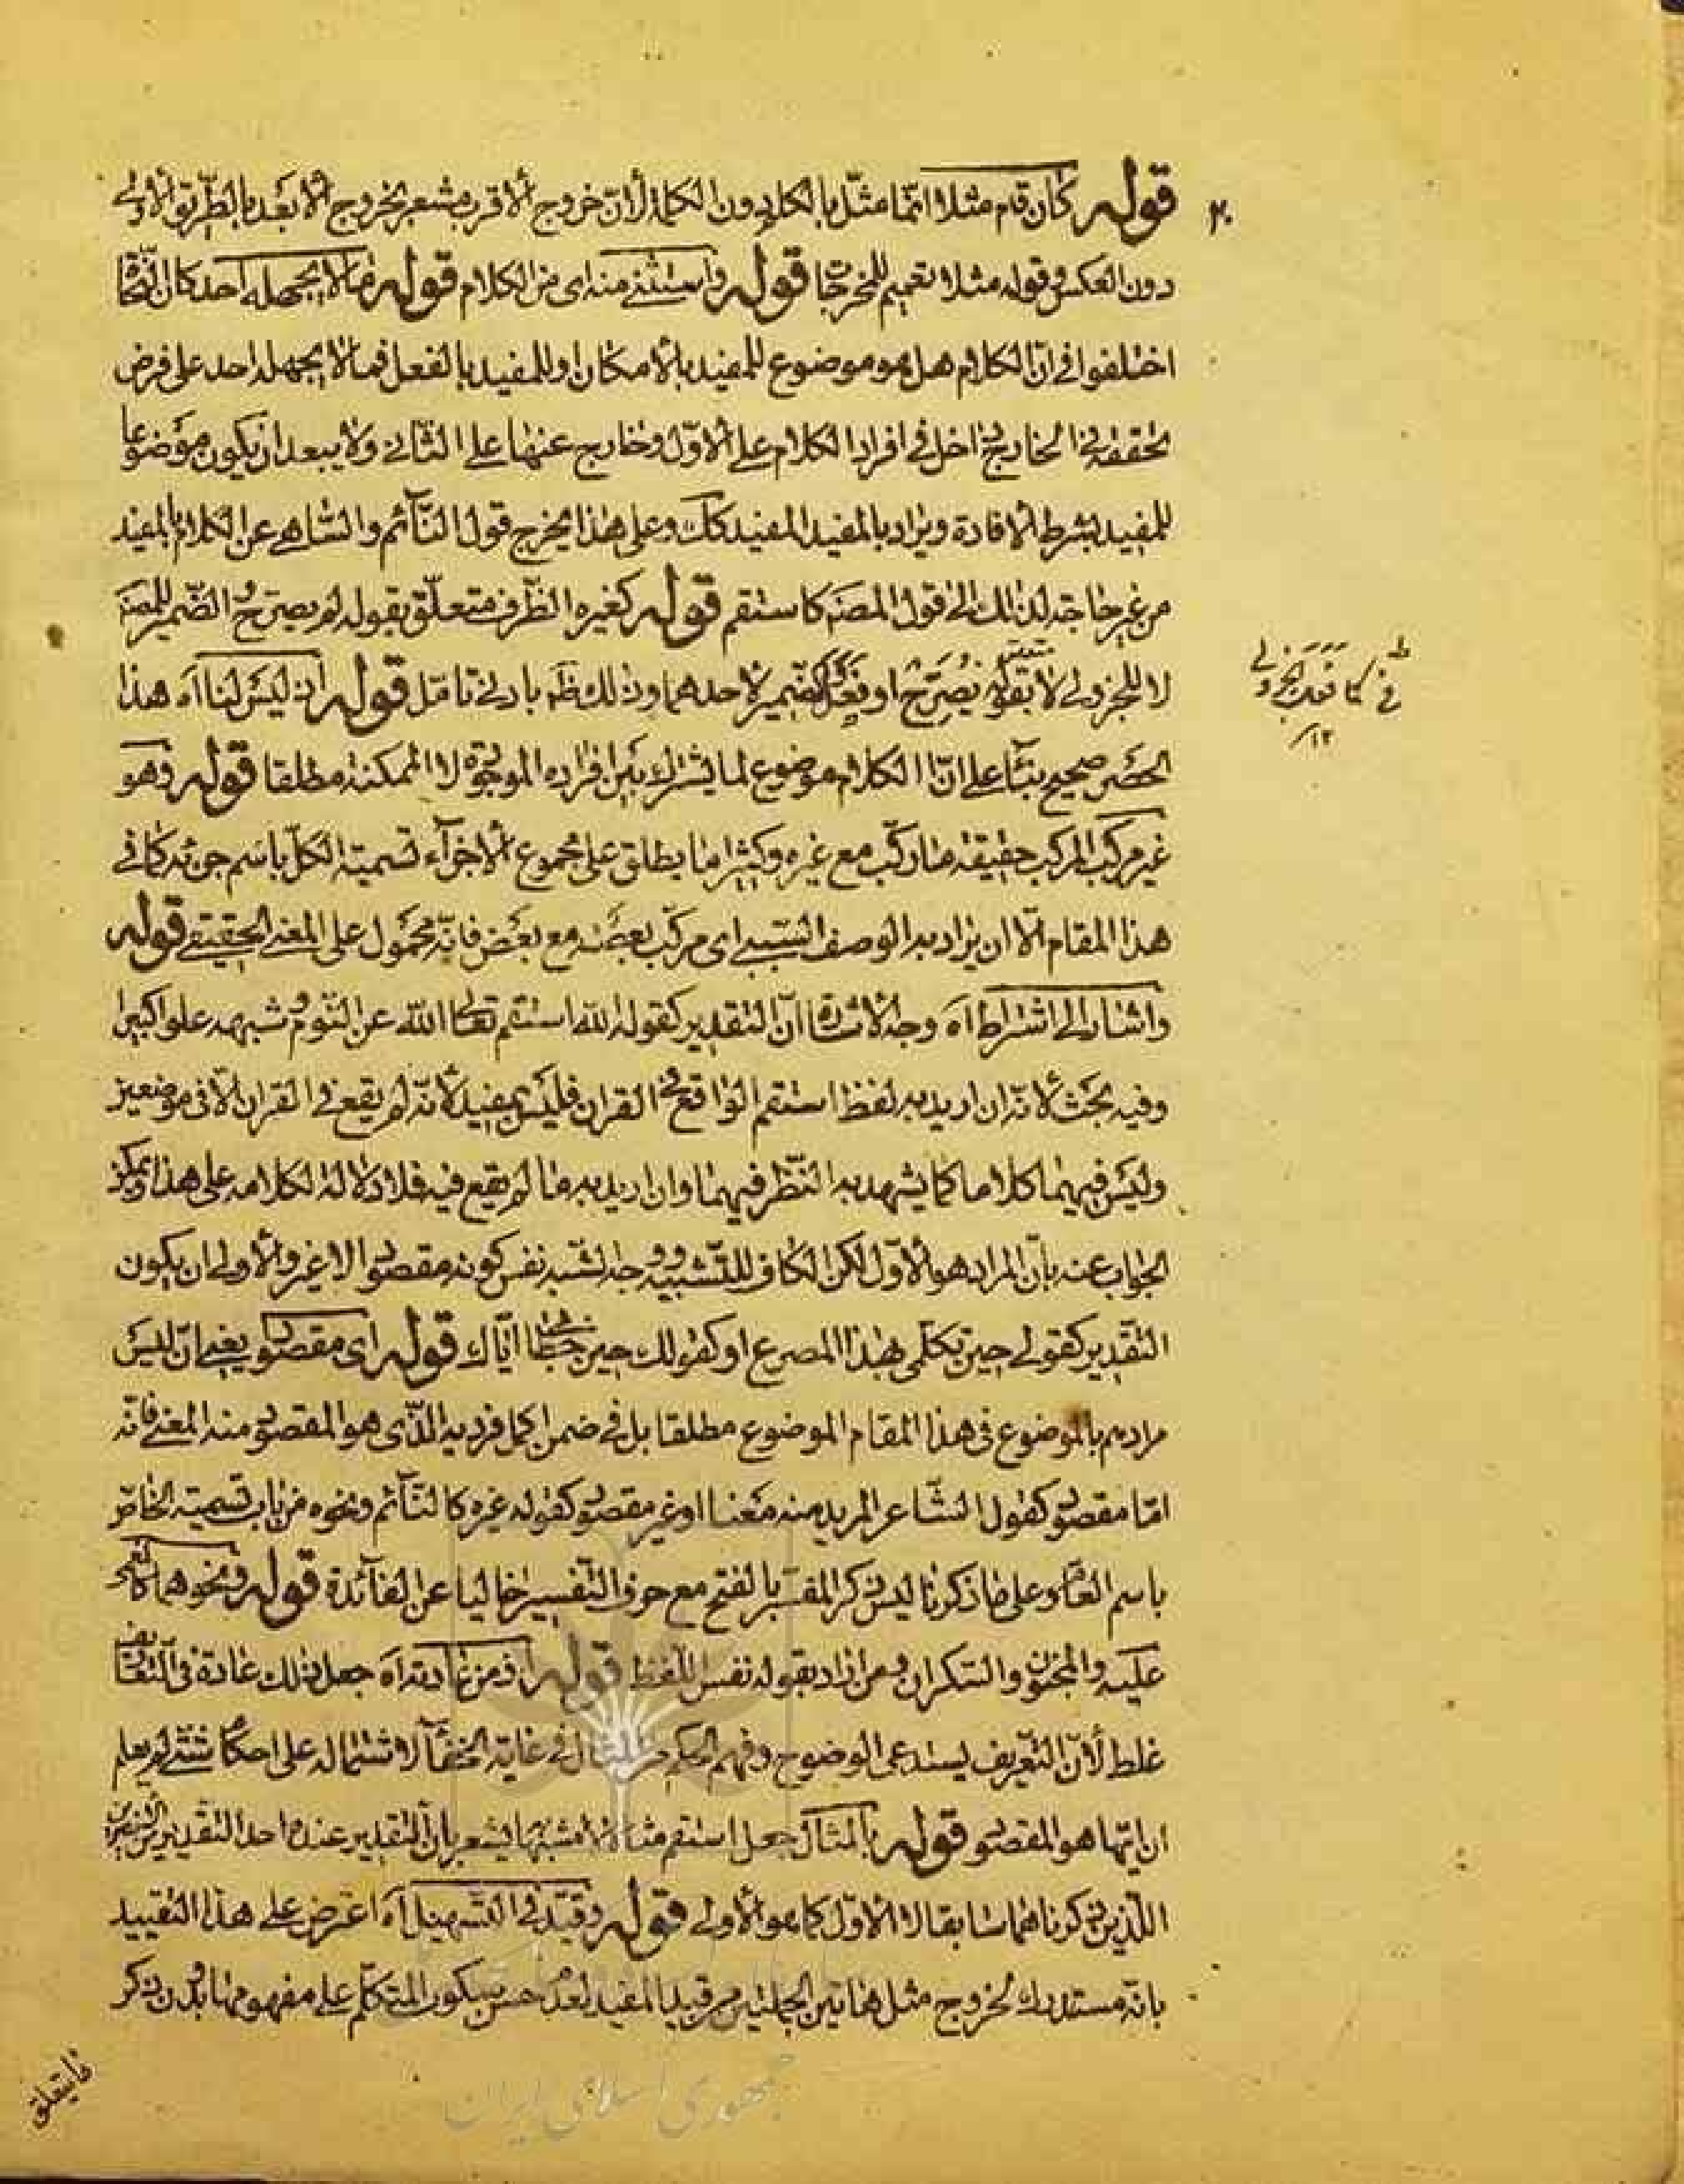 قوله كان قام مثلا انما مثل بالكلم دون الكلام لان خروج الاقرب مشعر بخروج الابعد بالطريق الاولى
دون العكس وقوله مثلا تعميم للمخرجات قوله واستثنى منه اى من الكلام قوله مما لا يجهله احد كان النحاة
اختلفوا فى ان الكلام هل هو موضوع للمفيد بالامكان او للمفيد بالفعل فما لا يجهله احد على فرض
تحققه فى الخارج داخل فى افراد الكلام على الاول وخارج عنها على الثانى ولا يبعد ان يكون موضوعا
للمفيد بشرط الافادة ويراد بالمفيد المفيد كك وعلى هذا يخرج قول النائم والساهى عن الكلام بالمفيد
من غير حاجة لذلك الى قول المصنف كاستقم قوله كغيره الظرف متعلق بقوله لم يصرح والضمير للمصنف
لا للجزولى لا بقوله يصرح او فعل الضمير لاحدهما وذلك ظ بادنى تامل قوله ان ليس لنا اه هذا
الحصر صحيح بناء على ان الكلام موضوع لما يشترك بين افراده الموجودة لا الممكنة مطلقا قوله وهو
غير مركب المركب حقيقة ما ركب مع غيره وكثيرا ما يطلق على مجموع الاجزاء تسمية الكل باسم جزئه كما فى
هذا المقام الا ان يراد به الوصف السببى اى مركب بعضه مع بعض فانه محمول على المعنى الحقيقى قوله
واشار الى اشتراط اه وجه الاشارة ان التقدير كقول الله استقم تعالى الله عن النوم وشبهه علوا كبيرا
وفيه بحث لانه ان اريد به لفظ استقم الواقع فى القران فليس بمفيد لانه لم يقع فى القران الا فى موضعين
وليس فيهما كلاما كما يشهد به النظر فيهما وان اريد به ما لم يقع فيه فلا دلالة لكلامه على هذا ويمكن
الجواب عنه بان المراد هو الاول لكن الكاف للتشبيه ووجه الشبه نفس كونه مقصودا لا غير والاولى ان يكون
التقدير كقولى حين تكلمى بهذا المصرع او كقولك حين خطابى اياك قوله اى مقصود يعنى ان ليس
مرادهم بالموضوع فى هذا المقام الموضوع مطلقا بل فى ضمن اكمل فرديه الذى هو المقصود منه المعنى فانه
اما مقصود كقول الشاعر المريد منه معنا او غير مقصود كقوله غيره كالنائم ونحوه من باب تسمية الخاص
باسم العام وعلى ما ذكرنا ليس ذكر المفسر بالفتح مع حرف التفسير خاليا عن الفائدة قوله ونحوهما كالمغمى
عليه والمجنون والسكران ومن اراد بقوله نفس اللفظ قوله اذ من عادته اه جعل ذلك عادة فى التعريف
غلط لان التعريف يستدعى الوضوح وفهم الحكم من المثال فى غاية الخفاء لاشتماله على احكام شتى لم يعلم
ان ايها هو المقصود قوله بالمثال جعل استقم مثالا لا مشبها يشعر بان التقدير عنده احد التقديرين
اللذين ذكرناهما سابقا لا الاول كما هو الاولى قوله وقيد فى التسهيل اه اعترض على هذا التقييد
بانه مستدرك لخروج مثل هاتين الجملتين من قيد المفيد لعدم حسن سكوت المتكلم على مفهومها بدون ذكر
ما يتعلق